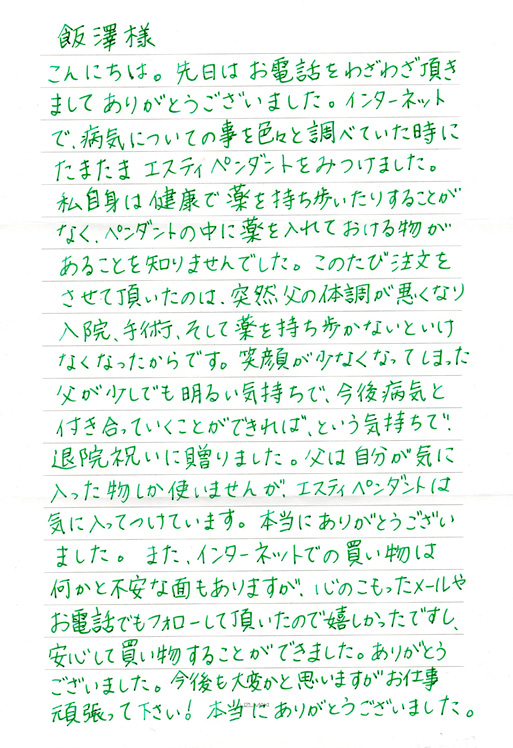 飯澤様
こんにちは。先日はお電話をわざわざ頂き
ましてありがとうございました。インターネット
で、病気についての事を色々と調べていた時に
たまたまエスティペンダントをみつけました。
私自身は健康で薬を持ち歩いたりすることが
なく、ペンダントの中に薬を入れておける物が
あることを知りませんでした。このたび注文を
させて頂いたのは、突然父の体調が悪くなり
入院、手術、そして薬を持ち歩かないといけ
なくなったからです。笑顔が少なくなってしまった
父が少しでも明るい気持ちで、今後病気と
付き合っていくことができれば、という気持ちで、
退院祝いに贈りました。父は自分が気に
入った物しか使いませんが、エスティペンダントは
気に入ってつけています。本当にありがとうござい
ました。また、インターネットでの買い物は
何かと不安な面もありますが、心のこもったメールや
お電話でもフォローして頂いたので嬉しかったですし、
安心して買い物することができました。ありがとう
ございました。今後も大変かと思いますがお仕事
頑張って下さい!本当にありがとうございました。